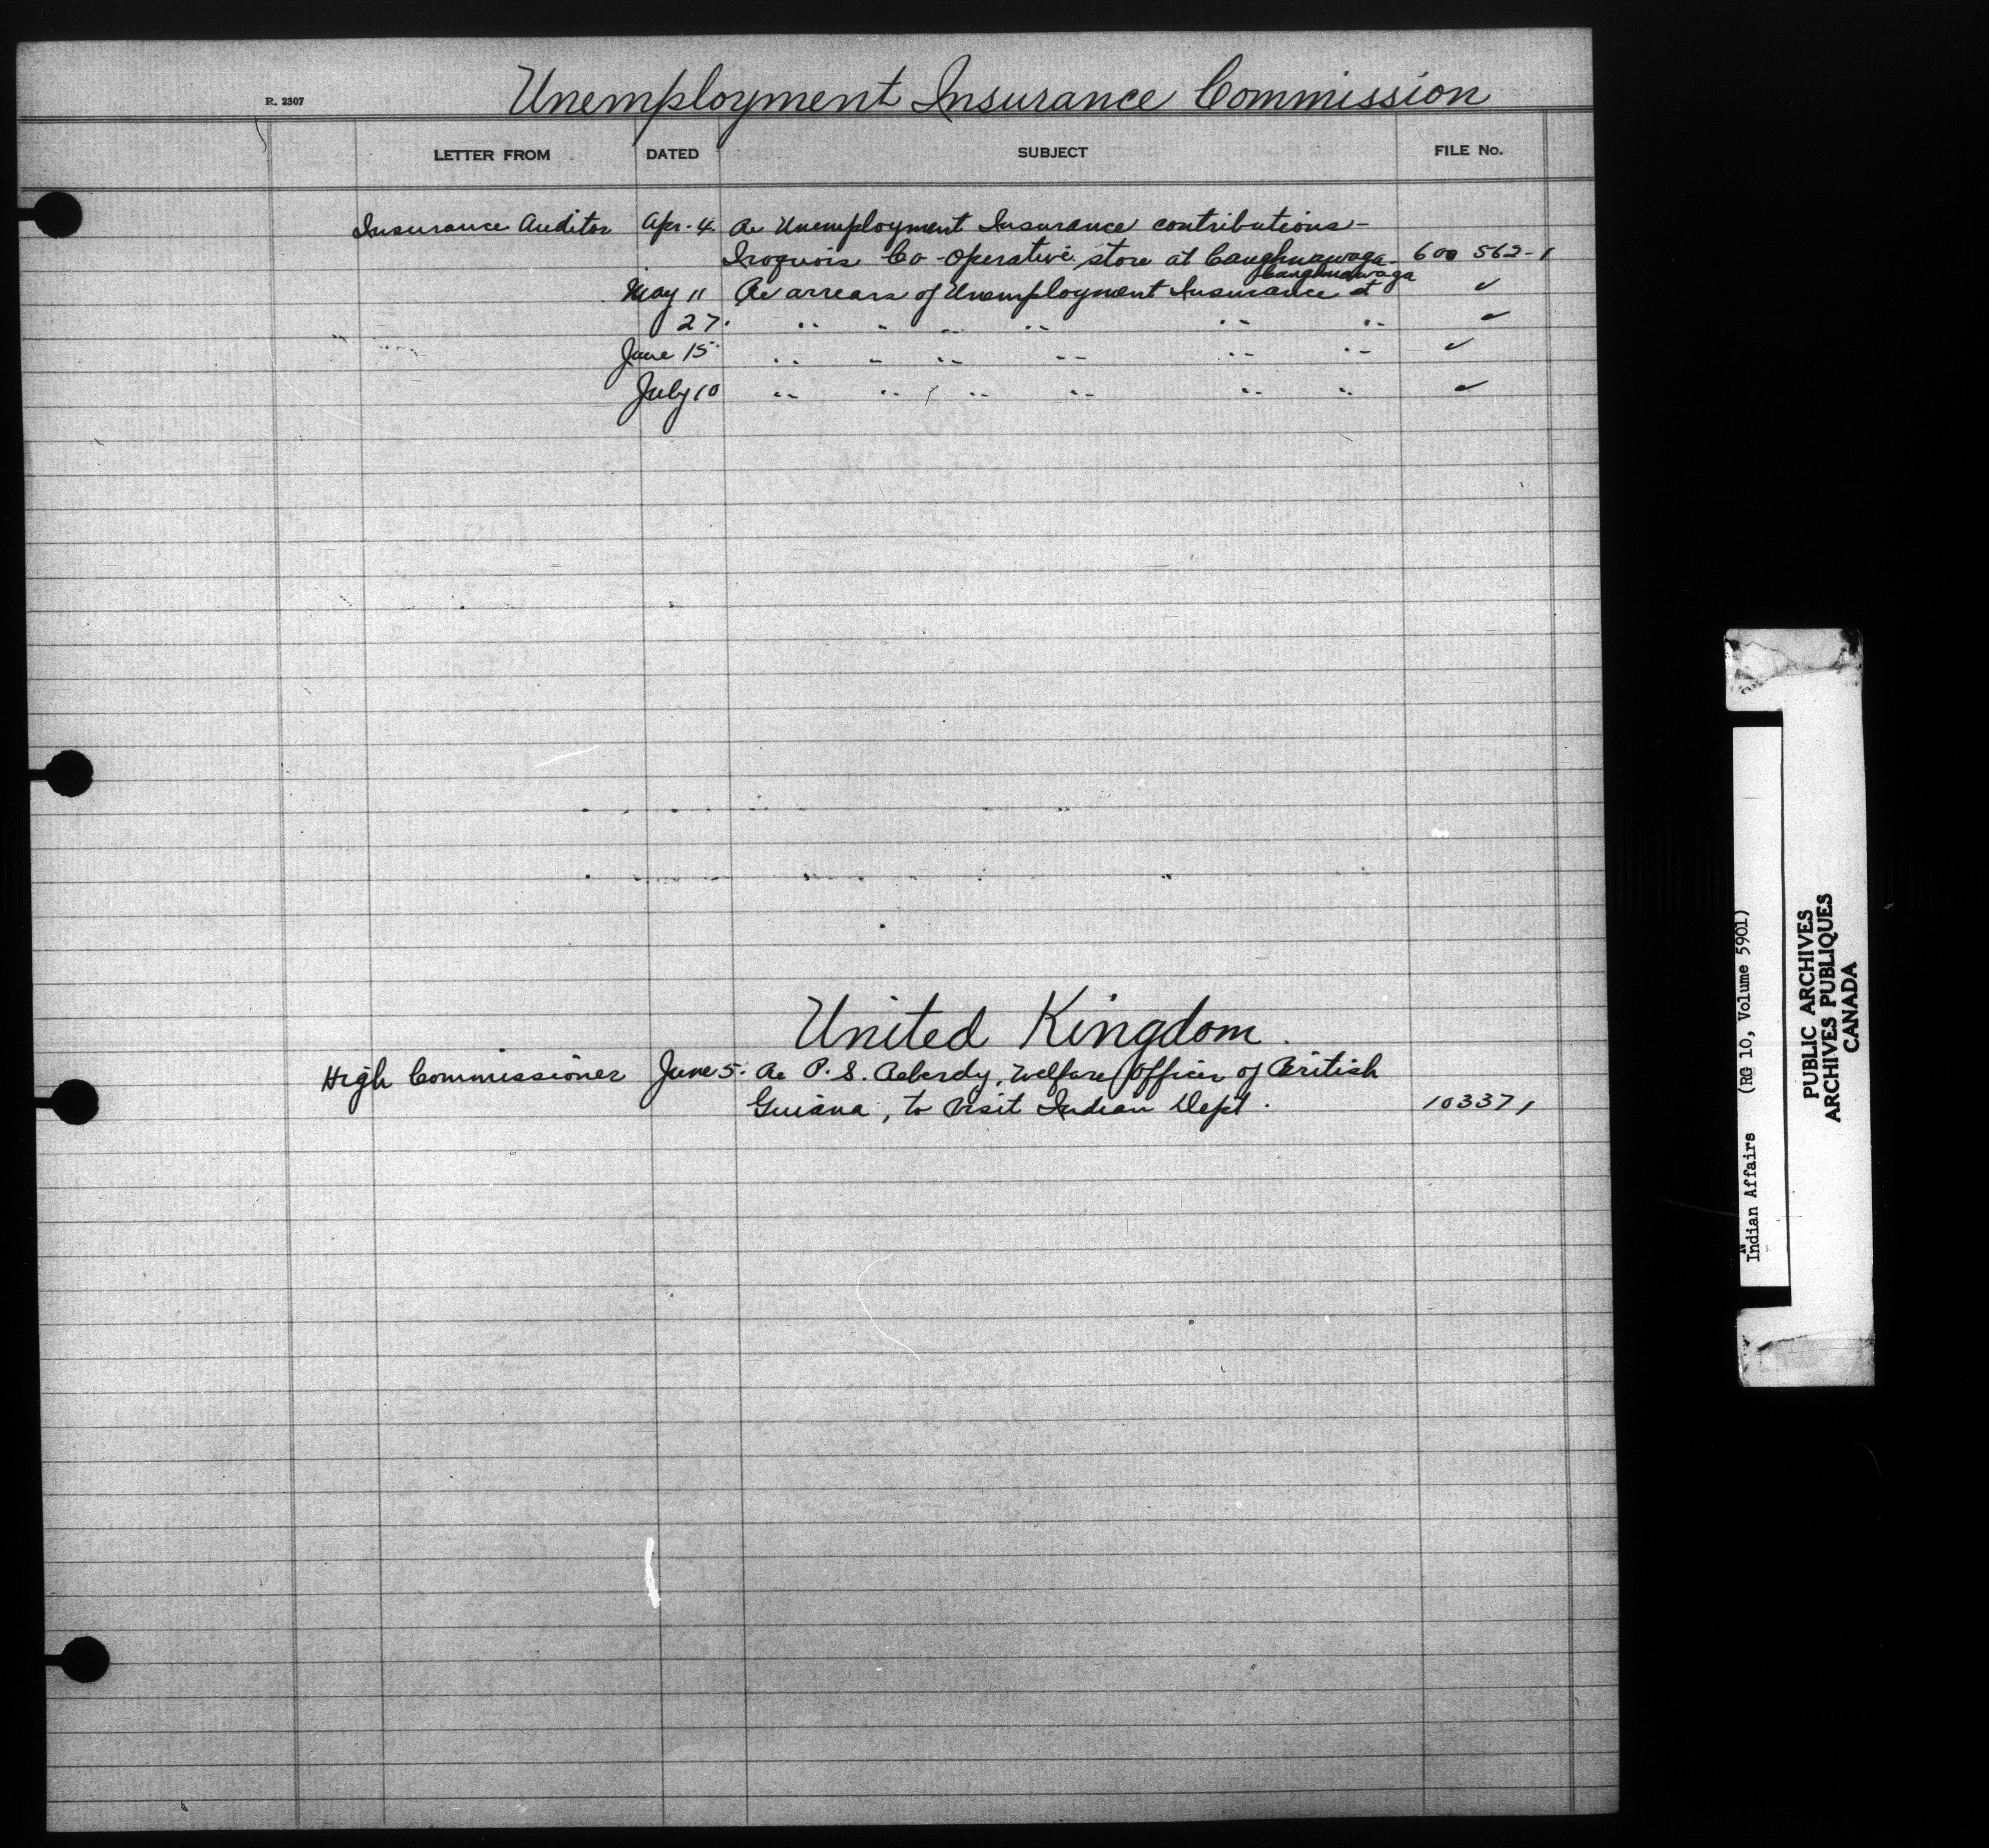 Unemployment Insurance Commission
R. 2307
LETTER FROM DATED SUBJECT FILE No.
Insurance Auditor Apr. 4 Re Unemployment Insurance contributions -
Iroquois Co-operative store at Caughnawaga - 600 562-1
Caughnawaga
May 11 Re arrears of Unemployment Insurance at ✓
27. " " " " " " ✓
June 15 " " " " " " ✓
July 10 " " " " " " ✓
United Kingdom.
High Commissioner June 5. Re P. S. Welfare Officer of British
Guiana, to visit Indian Dept. 103371
Indian Affairs (RG 10, Volume 5901)
PUBLIC ARCHIVES
ARCHIVES PUBLIQUES
CANADA